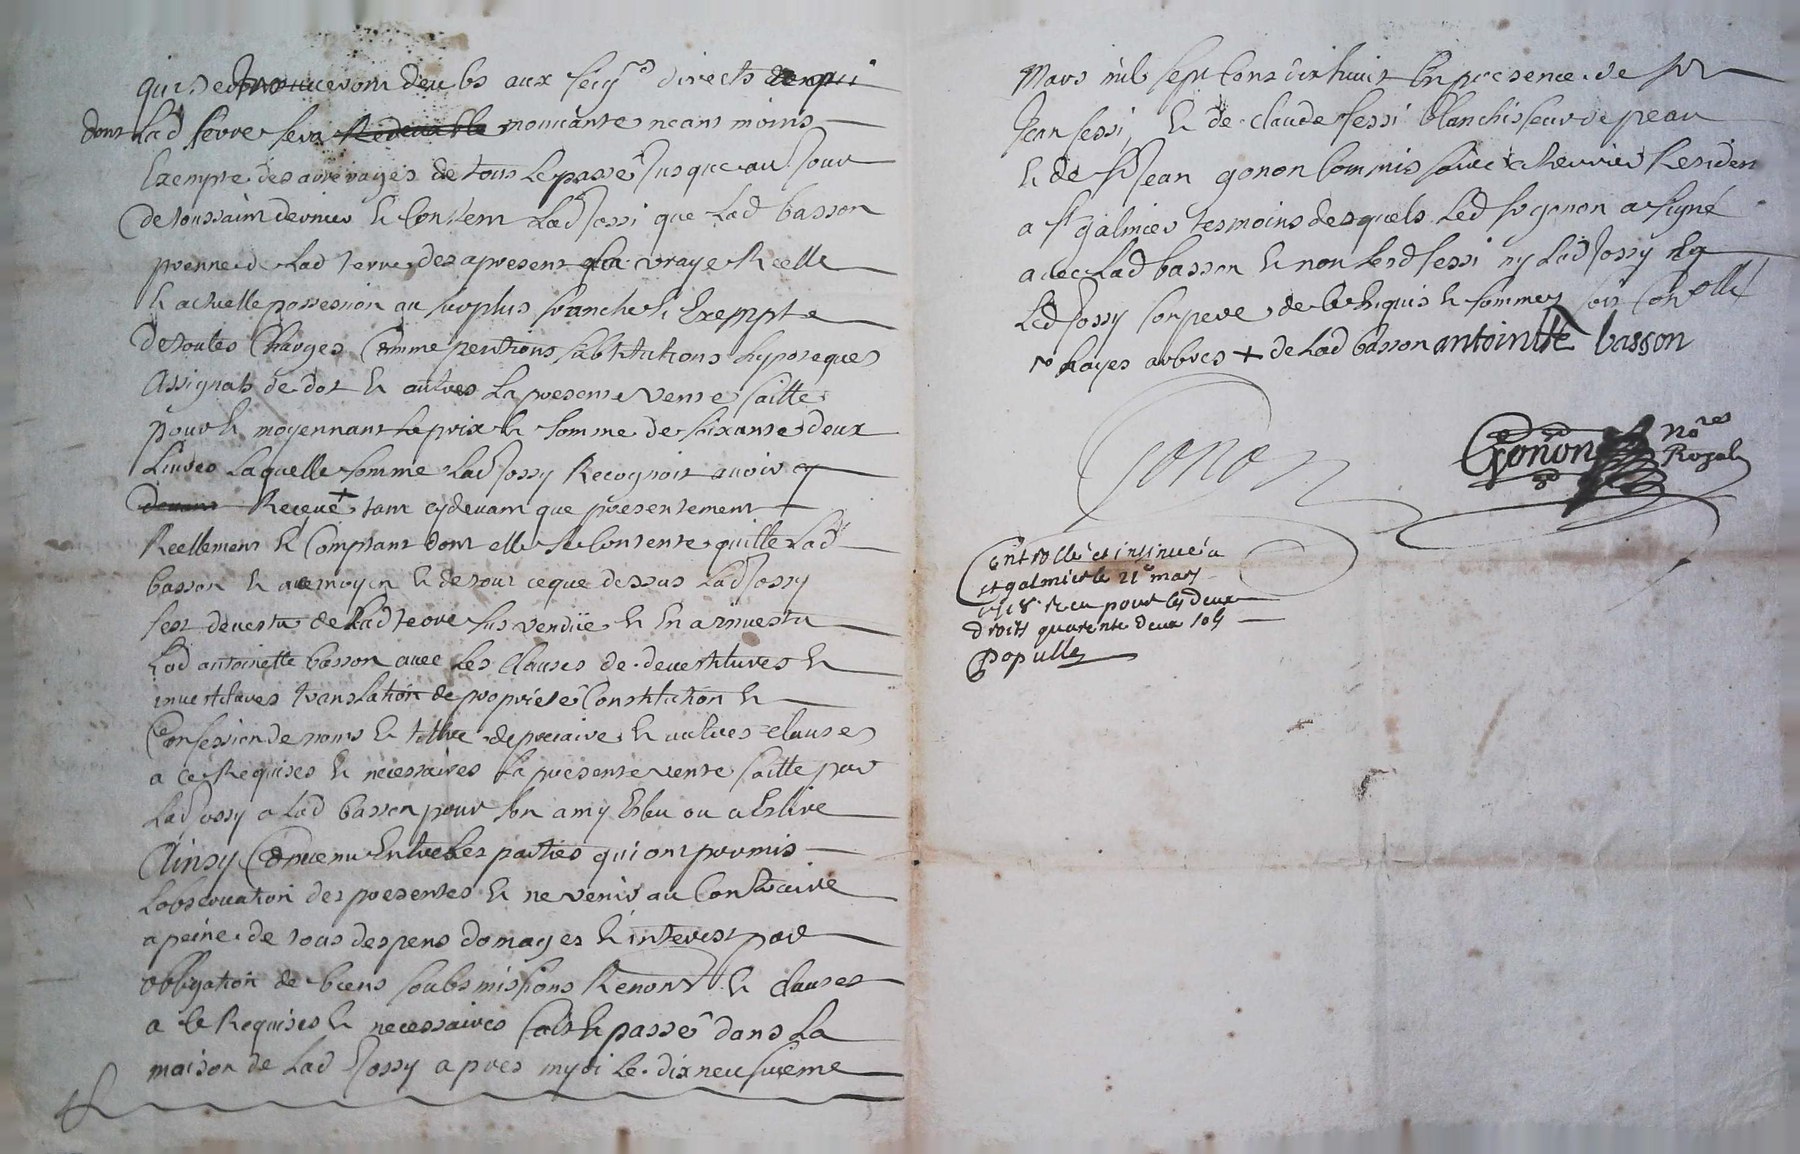 qui se trouveront deubs aux seigrs directs de qui
dont Lad terre sera Redevable mouvante neant moins
Exempte des arrerages de tous Le passé Jusque au Jour
de toussaint dernier & Consent Lad Jossi que Lad basson
prenne de Lad terre des apresent La vraye Reelle
& actuelle possession au surplus franche & Exempte
de toutes Charges Comme pentions substitutions hypoteques
assignats de dot & autres La presente vente faitte
pour & moyennant Le prix & somme de soixante deux
Livres Laquelle somme Lad Jossy Recognoit avoir cy
devant Receue + tant cydevant que presentement
Reellement & Comptant dont elle se Contente quitte Lad
basson & au moyen & de tout ce que dessus Lad Jossy
sest devestu de Lad terre sus vendüe & En a investu
Lad antoinette basson avec Les Clauses de devestitures &
investitures translation de proprieté Constitution &
Confession de noms & tittre de precaire & autres clauses
a ce Requises & necessaires La presente vente faitte par
Lad Jossy a Lad basson pour son amy Esleu ou a Eslire
Ainsy Convenu Entre Les parties qui ont promis
Lobservation des presentes & ne venir au Contraire
a peine de tous despens domages & interest par
obligation de biens soubsmissions Renont & clauses
a ce Requises & necessaires fait & passé dans La
maison de Lad Jossy apres mydi Le dixneufvieme
Mars mil sept Cens dix huict En presence de Sr
Jean sessi, & de claude sessi blanchisseur de peau
& de Sr Jean gonon Commis Resident
a St galmier tesmoins desquels Led Sr gonon a signé
avec Lad basson & non Lesd sessi ny Lad Jossy ny
Led Jossy son pere de ce Enquis & sommez soit Conollé
hayes arbres + de Lad basson antoinette basson
Gonon
Gonon Nores
Royal
Controllé et insinué a
st galmier le 21e mars
1718 Receu pour les deux
droits quarente deux sols
Populle